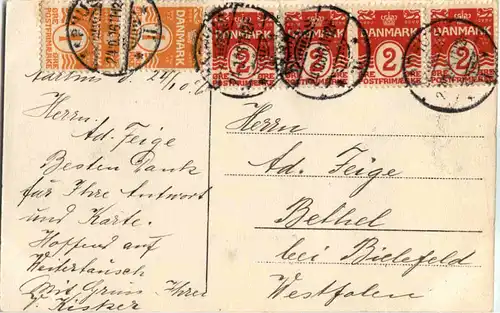 DANMARK
DANMARK
DANMARK
DANMARK
DANMARK
1
1
2
2
2
2
ØRE
POSTFRIMÆRKE
ØRE
ØRE
POSTFRIMÆRKE
ØRE
Aarhus 24/10.
Herrn
Ad. Feige
Besten Dank
für Ihre Antwort
und Karte.
Hoffend auf
Weitertausch
Mit Gruss Ihrer
Herrn
Ad. Feige
Bethel
bei Bielefeld
Westfalen